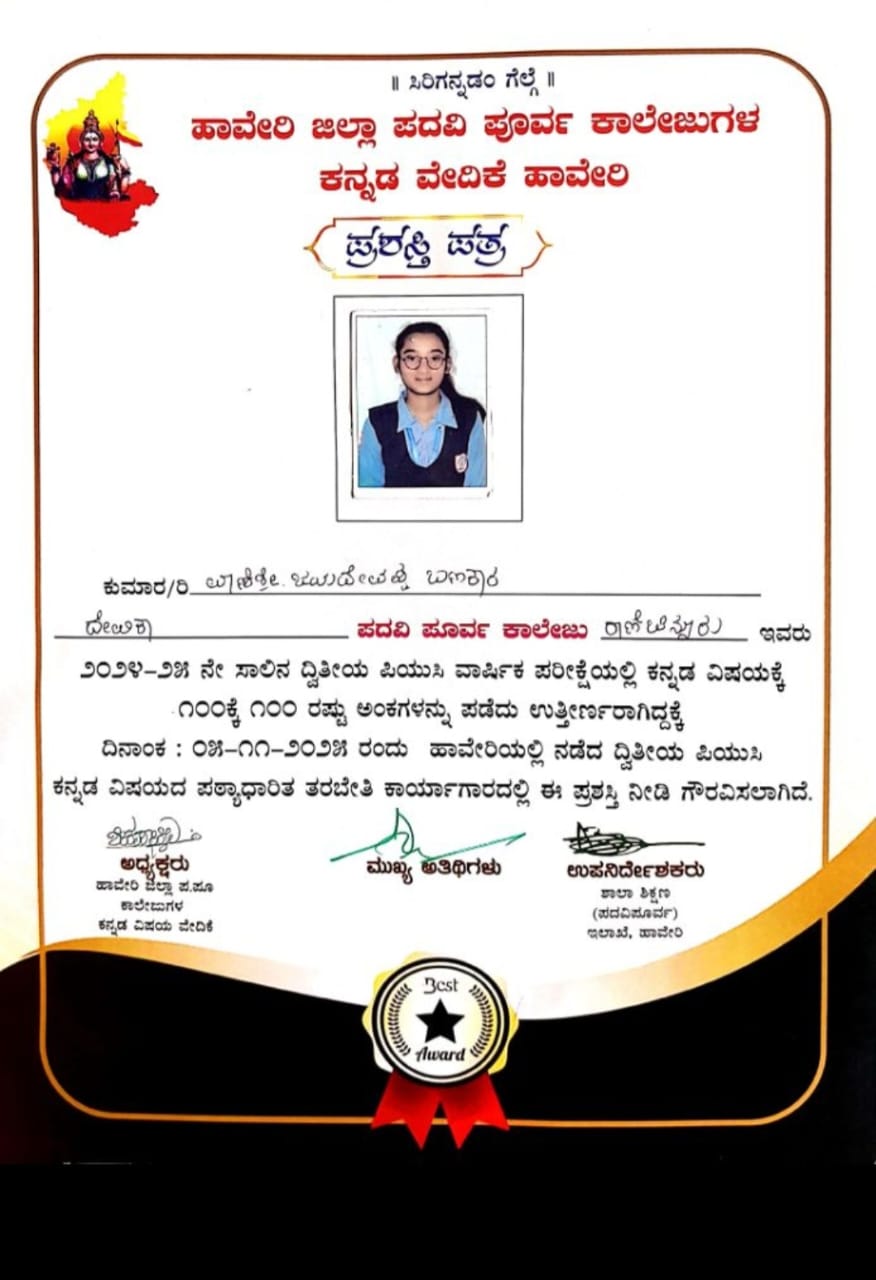 ॥ ಸಿರಿಗನ್ನಡಂ ಗೆಲ್ಗೆ ॥
ಹಾವೇರಿ ಜಿಲ್ಲಾ ಪದವಿ ಪೂರ್ವ ಕಾಲೇಜುಗಳ
ಕನ್ನಡ ವೇದಿಕೆ ಹಾವೇರಿ
ಪ್ರಶಸ್ತಿ ಪತ್ರ
ಕುಮಾರ/ರಿ ಬಣಕಾರ
ಪದವಿ ಪೂರ್ವ ಕಾಲೇಜು ರಾಣೆಬೆನ್ನೂರು ಇವರು
೨೦೨೪-೨೫ ನೇ ಸಾಲಿನ ದ್ವಿತೀಯ ಪಿಯುಸಿ ವಾರ್ಷಿಕ ಪರೀಕ್ಷೆಯಲ್ಲಿ ಕನ್ನಡ ವಿಷಯಕ್ಕೆ
೧೦೦ಕ್ಕೆ ೧೦೦ ರಷ್ಟು ಅಂಕಗಳನ್ನು ಪಡೆದು ಉತ್ತೀರ್ಣರಾಗಿದ್ದಕ್ಕೆ
ದಿನಾಂಕ : ೦೫-೧೧-೨೦೨೫ ರಂದು ಹಾವೇರಿಯಲ್ಲಿ ನಡೆದ ದ್ವಿತೀಯ ಪಿಯುಸಿ
ಕನ್ನಡ ವಿಷಯದ ಪಠ್ಯಾಧಾರಿತ ತರಬೇತಿ ಕಾರ್ಯಾಗಾರದಲ್ಲಿ ಈ ಪ್ರಶಸ್ತಿ ನೀಡಿ ಗೌರವಿಸಲಾಗಿದೆ.
ಅಧ್ಯಕ್ಷರು
ಹಾವೇರಿ ಜಿಲ್ಲಾ ಪ.ಪೂ
ಕಾಲೇಜುಗಳ
ಕನ್ನಡ ವಿಷಯ ವೇದಿಕೆ
ಮುಖ್ಯ ಅತಿಥಿಗಳು
ಉಪನಿರ್ದೇಶಕರು
ಶಾಲಾ ಶಿಕ್ಷಣ
(ಪದವಿಪೂರ್ವ)
ಇಲಾಖೆ, ಹಾವೇರಿ
Best
Award